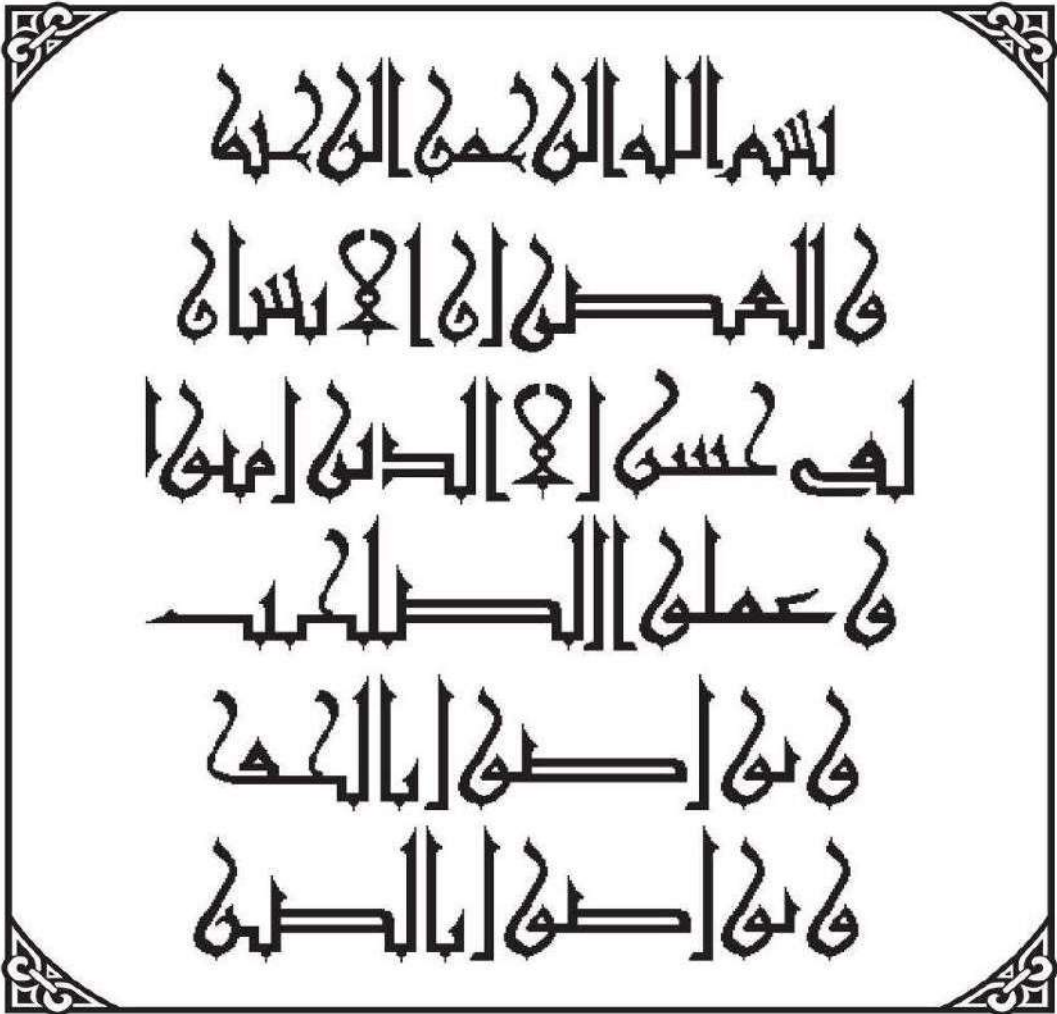 بسم الله الرحمن الرحيم
و العصر ان الانسان
لفى خسر الا الذين امنوا
و عملوا الصلحت
و تواصوا بالحق
و تواصوا بالصبر